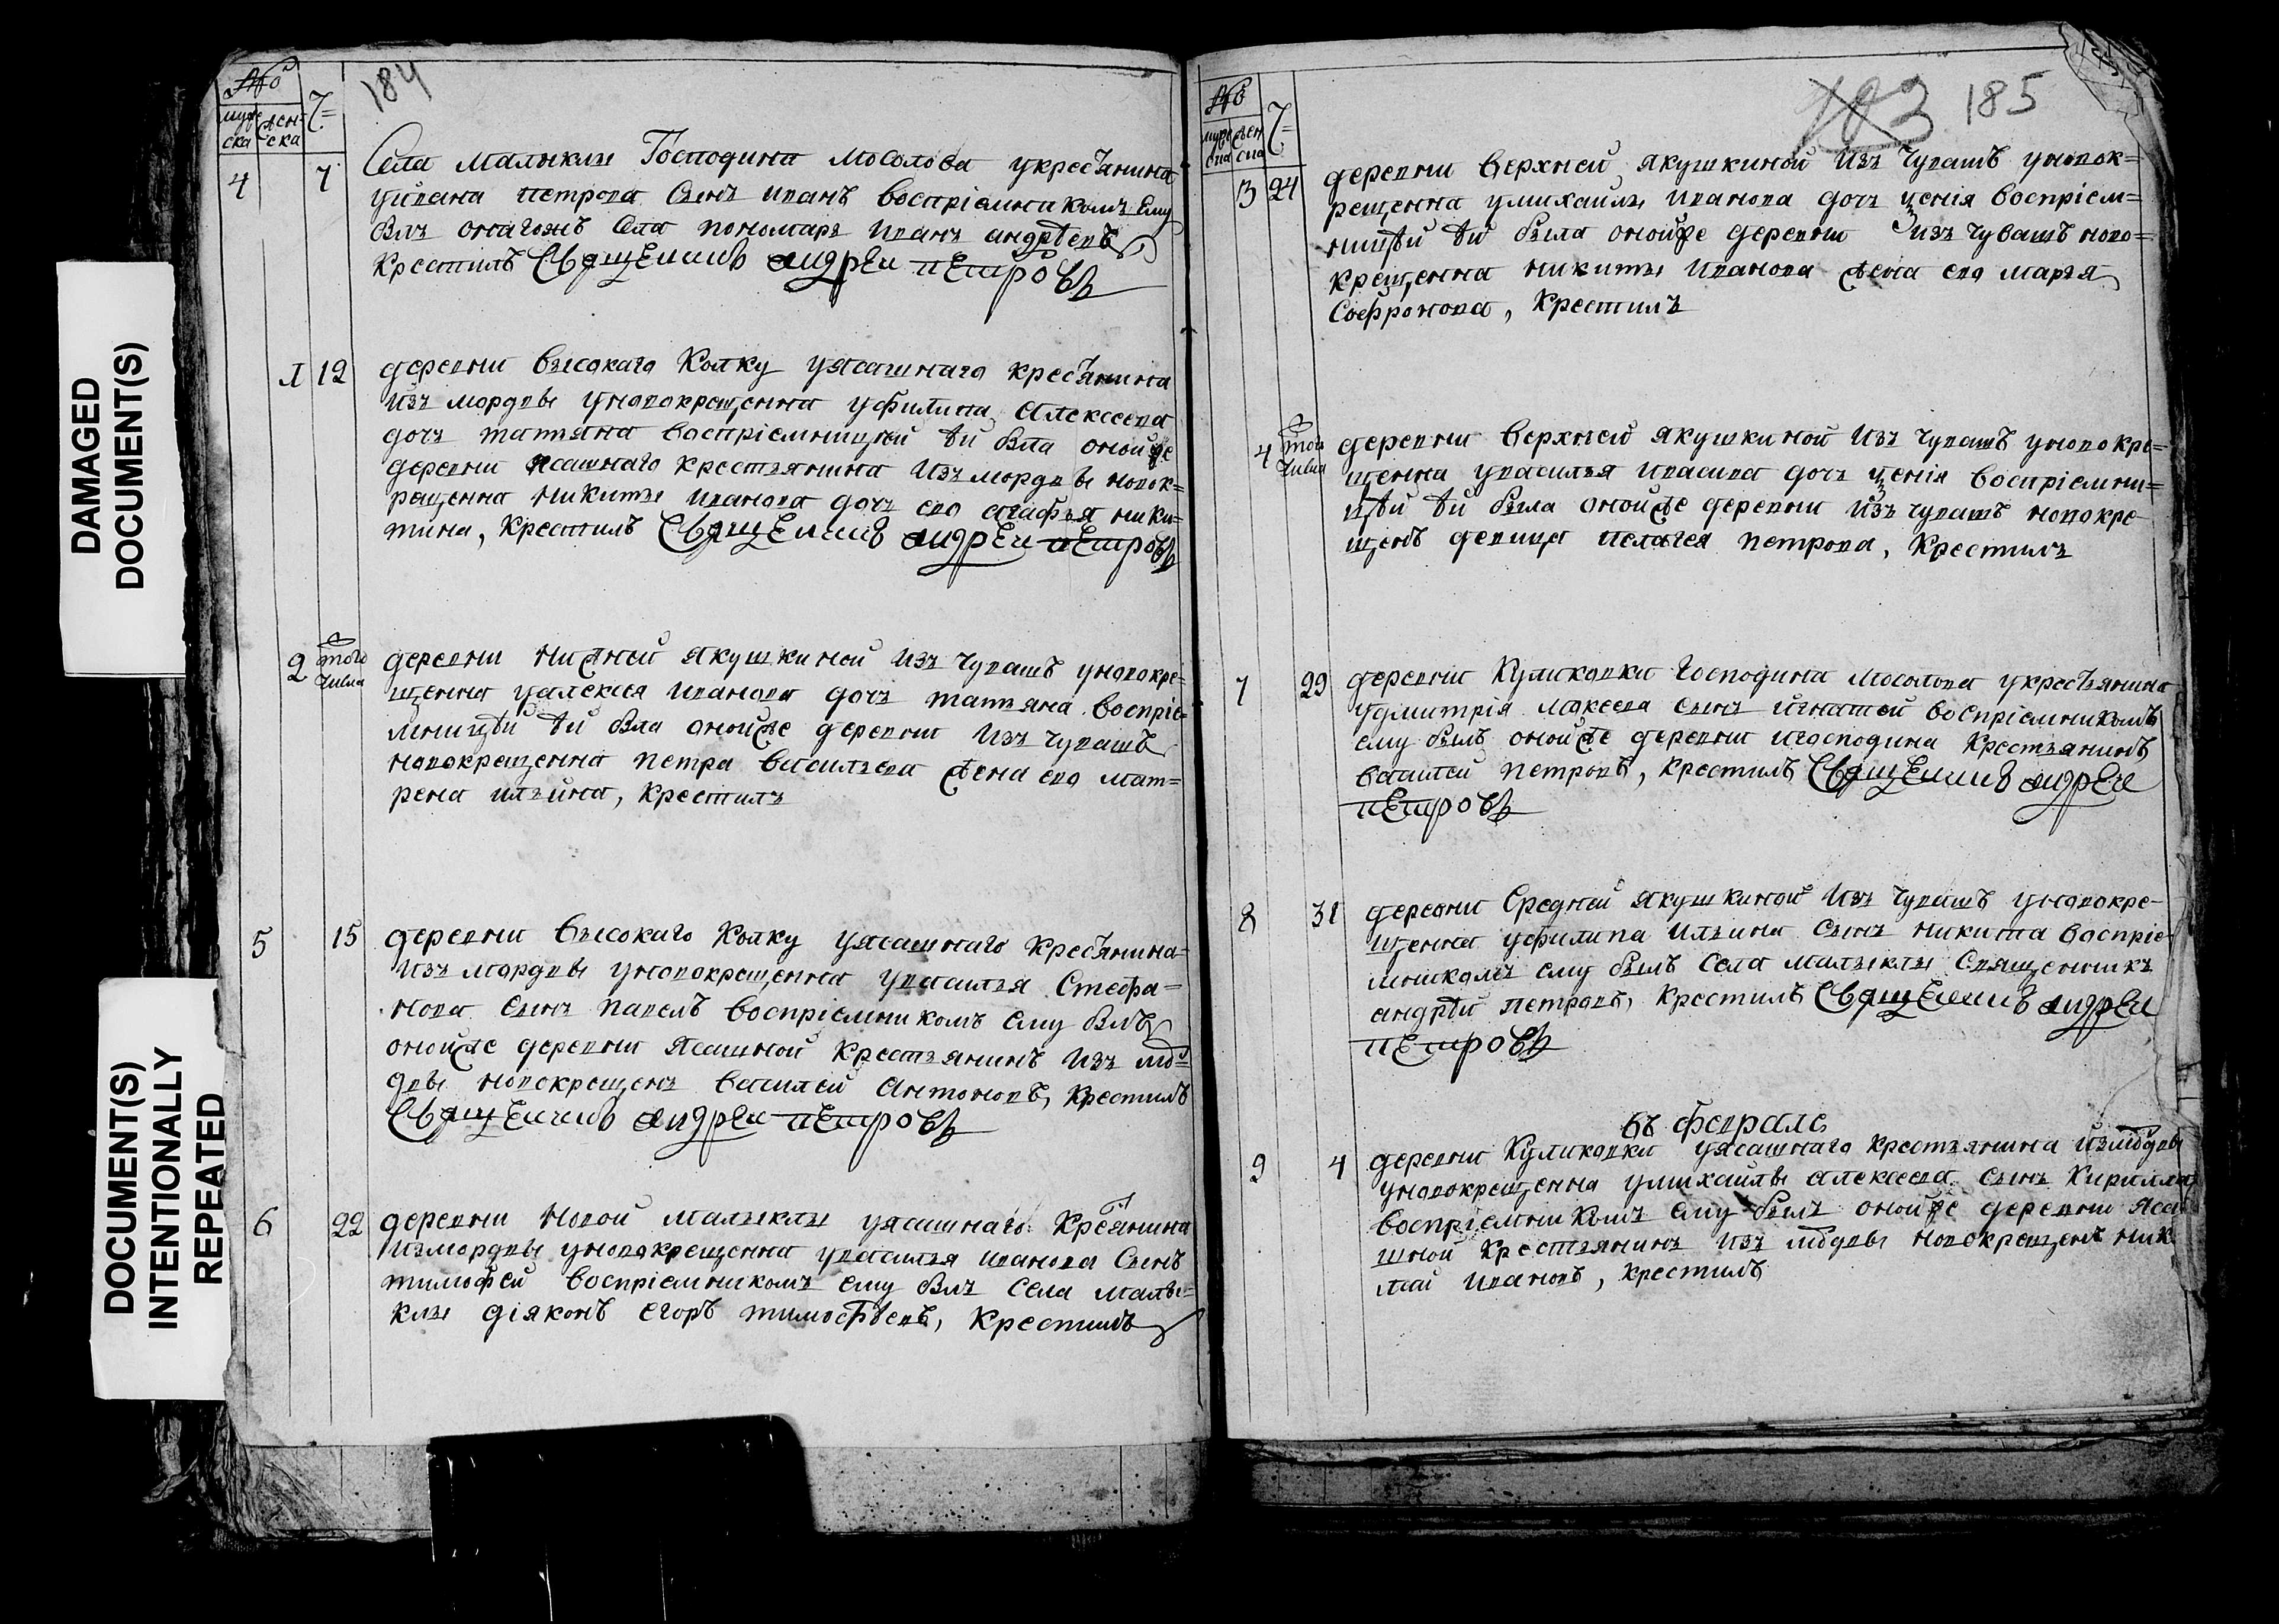 DAMAGED
DOCUMENT(S)
DOCUMENT(S)
INTENTIONALLY
REPEATED
184
№
муже ска женска
Ч
4 7 Села малыклы Господина Мосолова укресьянина
уивана петрова сынъ иванъ восприемникомъ ему
былъ онагожъ села пономарь иванъ андрѣевъ
крестилъ Священникъ андреи петровъ
1 12 деревни высокаго Колку уясашнаго кресьянина
изъ мордвы уновокрещенна уфилипа алексеева
дочь татьяна восприемницеи ѣй бла оной же
деревни ясашнаго крестьянина изъ мордвы новок=
рещенна никиты иванова дочь ево агафья ники=
тина, крестилъ Священникъ андреи петровъ
2 того числа деревни нижней якушкиной изъ чувашъ уновокре=
щенна уалексея иванова дочь татьяна восприе=
мницѣй ѣй бла оной же деревни изъ чувашъ
новокрещенна петра васильева жена ево мат=
рена ильина, крестилъ
5 15 деревни высокаго Колку уясашнаго кресьянина
изъ мордвы уновокрещенна увасилья Стефа=
нова сынъ павелъ восприемникомъ ему блъ
оной же деревни ясашной крестьянинъ изъ мо=
двы новокрещенъ василей антоновъ, крестилъ
Священникъ андреи петровъ
6 22 деревни новой малыклы уясашнаго кресянина
измордвы уновокрещенна увасилья иванова сынъ
тимофей восприемникомъ ему блъ села малы=
клы дiяконъ егоръ тимофѣевъ, крестилъ
183 185
№
муже ска женска
Ч
3 24 деревни верхней якушкиной изъ чувашъ уновок=
рещенна умихайлы иванова дочь ксенiя восприем=
ницѣй ѣй была оной же деревни изъ чувашъ ново=
крещенна никиты иванова жена ево марья
Софронова, крестилъ
4 того числа деревни верхней якушкиной изъ чувашъ уновокре=
щенна увасилья дочь ксенiя восприемни=
цѣй ѣй была оной же деревни изъ чувашъ новокре
щенъ девица пелагея петрова, крестилъ
7 29 деревни Куликовки господина мосолова укресьянина
удмитрiя мокеева сынъ игнатей восприемникомъ
ему былъ оной же деревни игосподина крестьянинъ
василей петровъ, крестилъ Священникъ андреи
петровъ
8 31 деревни Средней якушкиной изъ чувашъ уновокре=
щенна уфилипа ильина сынъ никита восприе
мникомъ ему былъ села малыклы Священникъ
андрѣй петровъ, крестилъ Священникъ андреи
петровъ
въ феврале
9 4 деревни Куликовки уясашнаго крестьянина измодвы
уновокрещенна умихайлы алексеева сынъ Кирилла
восприемникомъ ему былъ оной же деревни яса
шной крестьянинъ изъ модвы новокрещенъ ник
лай ивановъ, крестилъ